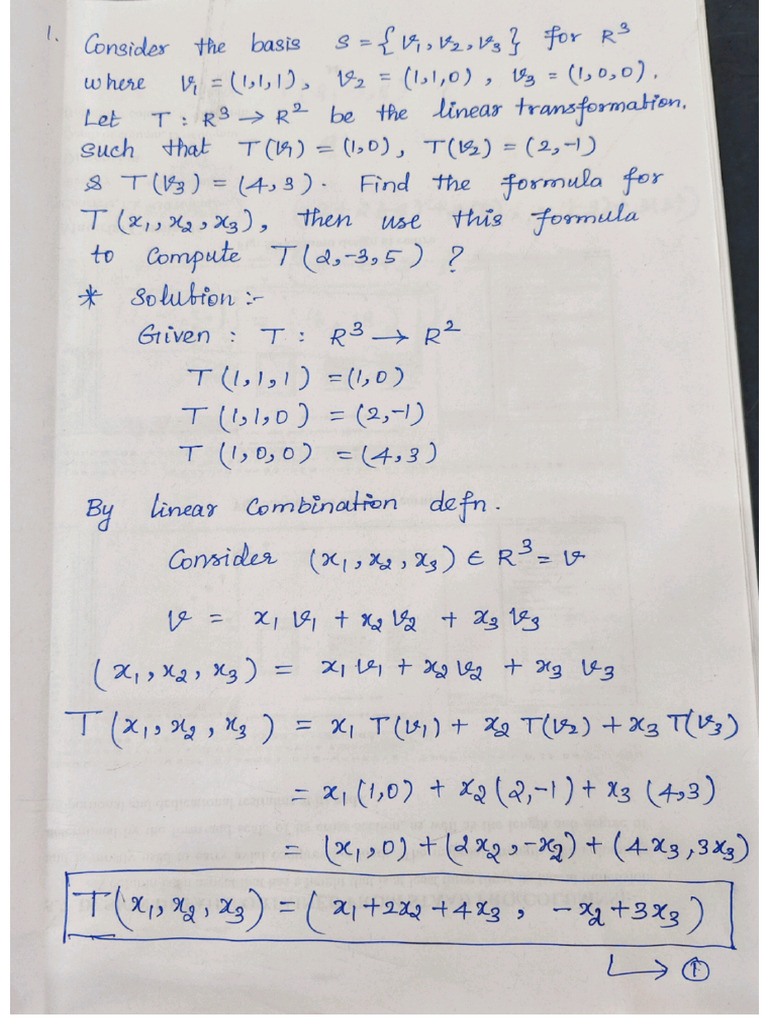 1. Consider the basis S = {v₁, v₂, v₃} for R³
where v₁ = (1,1,1), v₂ = (1,1,0), v₃ = (1,0,0).
Let T : R³ → R² be the linear transformation.
such that T(v₁) = (1,0), T(v₂) = (2,-1)
& T(v₃) = (4,3). Find the formula for
T(x₁, x₂, x₃), then use this formula
to compute T(2,-3,5) ?
* Solution :-
Given : T : R³ → R²
T(1,1,1) = (1,0)
T(1,1,0) = (2,-1)
T(1,0,0) = (4,3)
By linear combination defn.
Consider (x₁, x₂, x₃) ∈ R³ = v
v = x₁ v₁ + x₂ v₂ + x₃ v₃
(x₁, x₂, x₃) = x₁ v₁ + x₂ v₂ + x₃ v₃
T(x₁, x₂, x₃) = x₁ T(v₁) + x₂ T(v₂) + x₃ T(v₃)
= x₁ (1,0) + x₂ (2,-1) + x₃ (4,3)
= (x₁, 0) + (2x₂, -x₂) + (4x₃, 3x₃)
T(x₁, x₂, x₃) = (x₁ + 2x₂ + 4x₃, -x₂ + 3x₃)
↳ ①